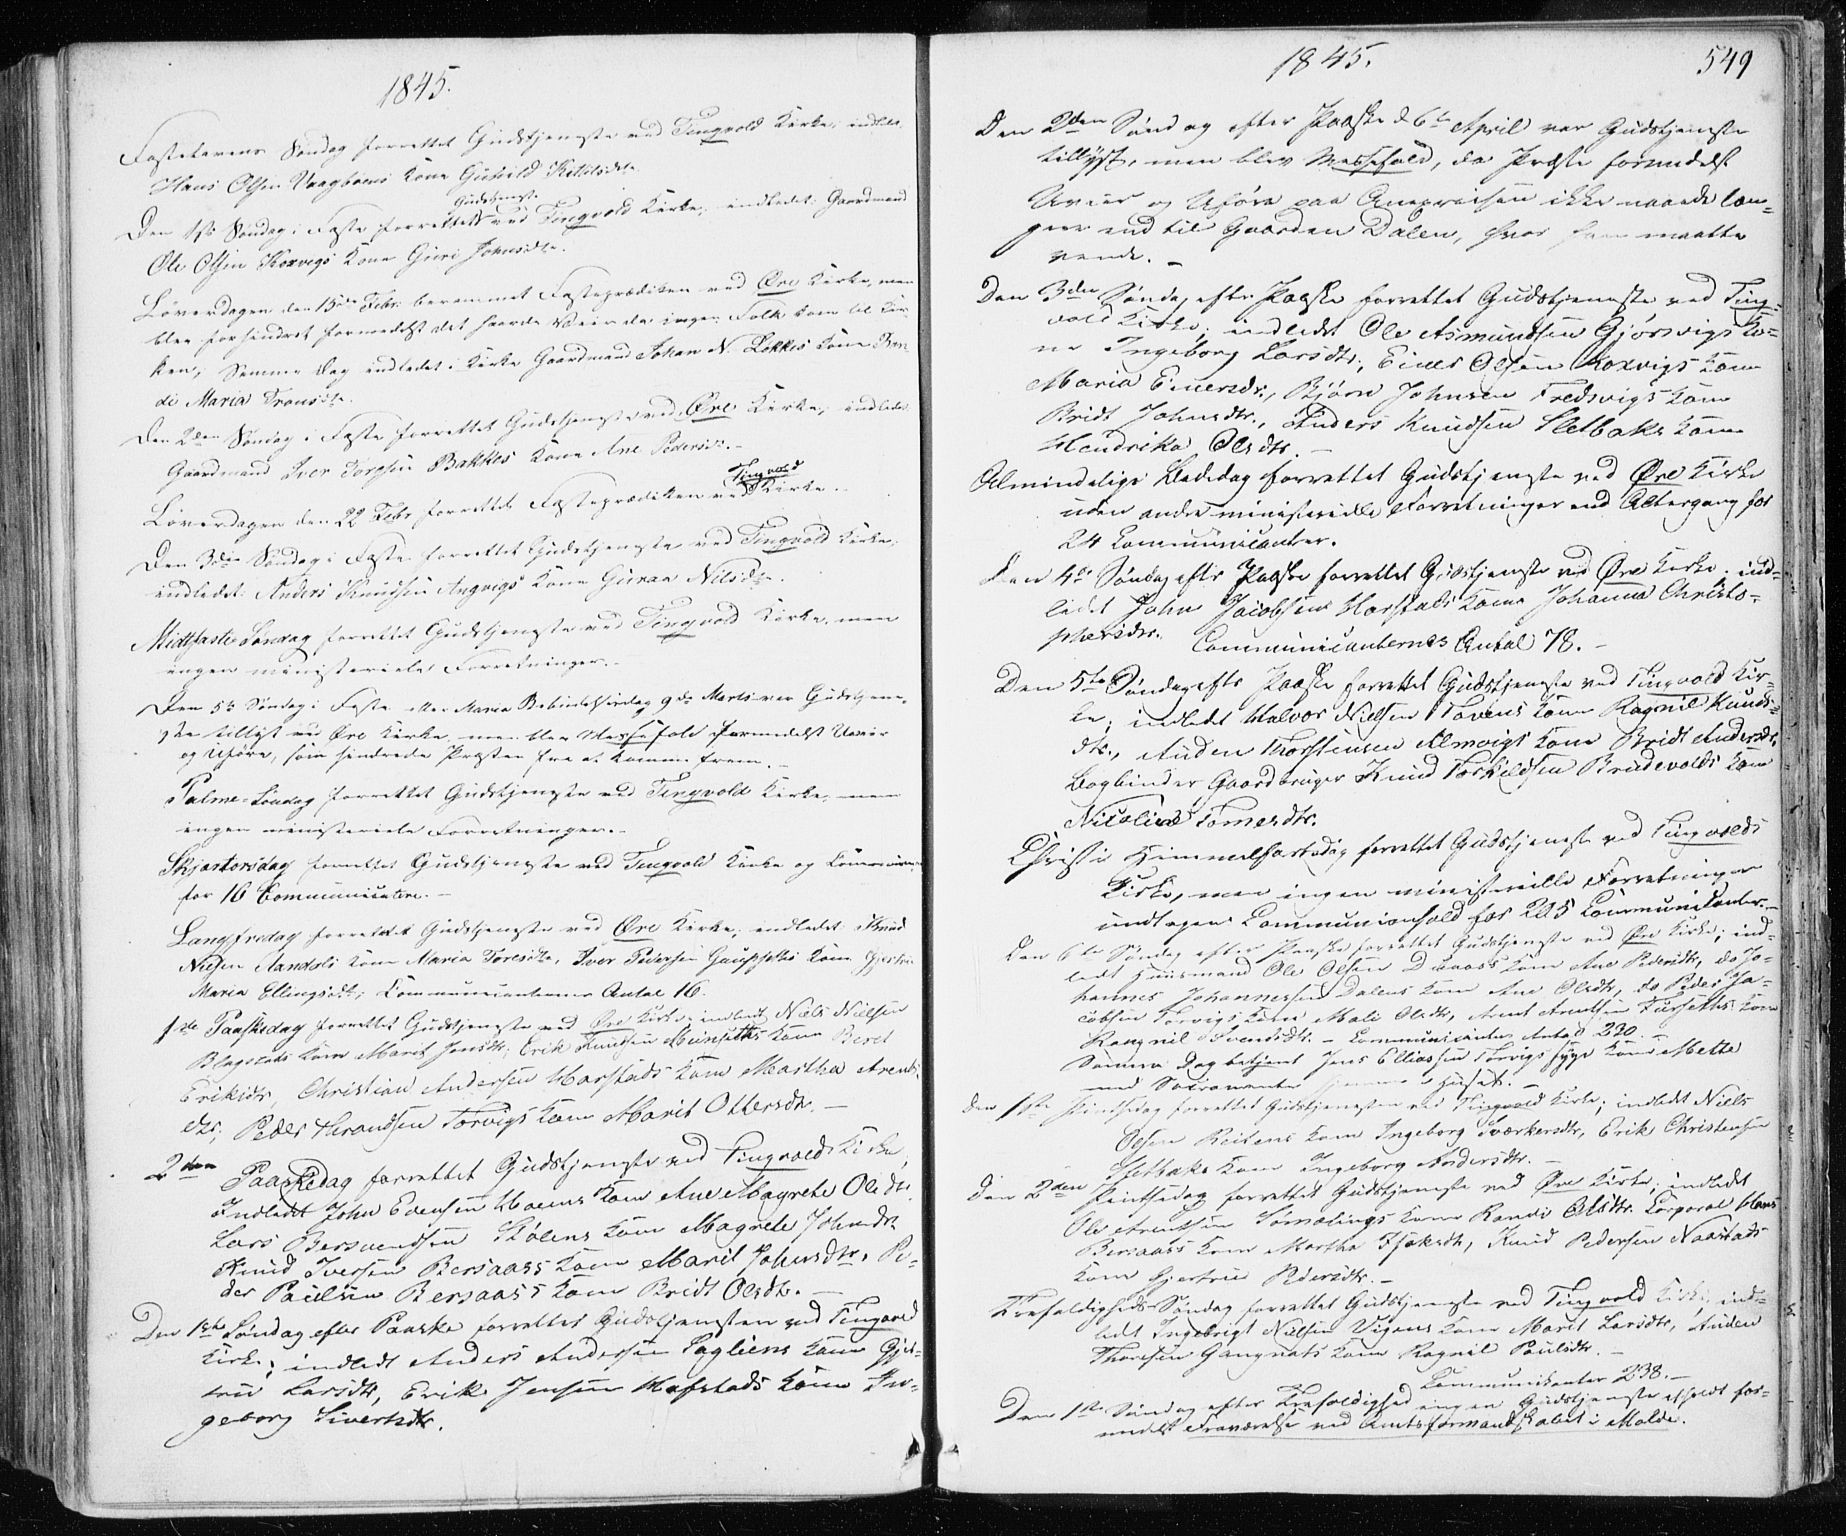 1845.
Fastelavens Søndag forrettet Gudstjeneste ved Tingvold Kirke, indledt
Hans Olsen Vaagbøens Kone Guhild Kittilsdtr.
Gudstjeneste
Den 1ste Søndag i Faste forrettet ved Tingvold Kirke, indledet Gaardmand
Ole Olsen Koxvigs Kone Guri Johnsdtr.
Løverdagen den 15de Febr. berammet Fasteprædiken ved Øre Kirke, men
blev forhindret formedelst det haarde Veir da ingen Folk kom til Kir-
ken, Samme Dag indledet i Kirke Gaardmand Johan N. Løkkes Kone Ran-
di Maria Transdtr.
Den 2den Søndag i Faste forrettet Gudstjeneste ved Øre Kirke, indledet
Gaardmand Iver Toresen Bakkes Kone Ane Pedersdtr. –
Tingvold
Løverdagen den 22 Febr. forrettet Fasteprædiken ved Kirke.
Den 3die Søndag i Faste forrettet Gudstjeneste ved Tingvold Kirke,
indledet Anders Knudsen Angvigs Kone Gunaa Nilsdtr.
Midtfaste Søndag forrettet Gudstjeneste ved Tingvold Kirke, men
ingen ministerielle Forretninger. –
Den 5te Søndag i Faste eller Maria Bebudelsesdag 9de Marts var Gudstjene-
ste tillyst ved Øre Kirke, men blev Messefald formedelst Uveir
og Uføre, som hindrede Præsten fra at komme frem. –
Palme-Søndag forrettet Gudstjeneste ved Tingvold Kirke, men
ingen ministerielle Forretninger. –
Skjærtorsdag forrettet Gudstjeneste ved Tingvold Kirke og Communion
for 16 Communicantere. –
Langfredag forrettet Gudstjeneste ved Øre Kirke, indledet Knud
Nielsen Aandals Kone Maria Toresdtr, Iver Pedersen Gaupsets Kone Gjertru
Maria Ellingsdtr; Communicanternes Antal 16.
1ste Paaskedag forrettet Gudstjeneste ved Øre Kirke, indledt Niels Nielsen
Blegstads Kone Marit Jensdtr, Erik Knudsen Meisæths Kone Beret
Eriksdtr, Christian Andersen Harstads Kone Martha Arents-
dtr, Peder Trondsen Torvigs Kone Marit Ottersdtr. –
2den Paaskedag forrettet Gudstjeneste ved Tingvold Kirke,
Indledet John Evensen Moens Kone Ane Magrete Olsdtr
Lars Bersvendsen Stølens Kone Magrete Johnsdtr
Knud Iversen Bersaass Kone Marit Johnsdtr, Pe-
der Paulsen Bersaass Kone Bridt Olsdtr. –
Den 1ste Søndag efter Paaske forrettet Gudstjenesten ved Tingvold
Kirke; indledt Anders Andersen Sagliens Kone Gjer-
true Larsdtr, Erik Jensen Hafstads Kone In-
geborg Sivertsdtr.
1845.
549
Den 2den Søndag efter Paaske d 6te April var Gudstjeneste
tillyst, men blev Messefald, da Præsten formedelst
Uveir og Uføre paa Annexreisen ikke naaede læn-
gere end til Gaarden Dalen, hvor han maatte
vende. –
Den 3die Søndag efter Paaske forrettet Gudstjeneste ved Ting-
vold Kirke; indledt Ole Asmundsen Gjørsvigs Ko-
ne Ingeborg Larsdtr, Einer Olsen Koxvigs Kone
Maria Einersdr., Bjørn Johnsen Fredsvigs Kone
Bridt Johnsdtr., Anders Knudsen Sletbaks Kone
Hendrika Olsdtr. –
Almindelige Bededag forrettet Gudstjeneste ved Øre Kirke
uden andre ministerielle Forretninger end Altergang for
24 Communicanter.
Den 4de Søndag efter Paaske forrettet Gudstjeneste ved Øre Kirke, ind-
ledt John Jacobsen Harstads Kone Johanna Christo-
phersdtr. Communicanternes Antal 78. –
Den 5te Søndag efter Paaske forrettet Gudstjeneste ved Tingvold Kir-
ke; indledt Halvor Nielsen Tovens Kone Ragnil Knuds-
dtr., Auden Thorstensen Almvigs Kone Bridt Andersdtr,
Bogbinder Gaardbruger Knud Torkildsen Brudevolds Kone
Nicoline Tomesdtr.
Christi Himmelfartsdag forrettet Gudstjeneste ved Tingvolds
Kirke, men ingen ministerielle Forretninger
undtagen Communionhold for 225 Communicanter. –
Den 6te Søndag efter Paaske forrettet Gudstjeneste ved Øre Kirke; ind-
ledt Huusmand Ole Olsen Duaass Kone Ane Pedersdtr, do Jo-
hannes Johannessen Dalens Kone Ane Olsdtr, do Peder Ja-
cobsen Torvigs Kone Mali Olsdtr, Arnt Arntsen Furseths Kone
Rangnil Svendsdtr. – Communicanter Antal 230. –
Samme Dag betjent Jens Elliassen Torvigs syge Kone Mette
med Sacramentet hjemme i Huset. –
Den 1ste Pindsedag forrettet Gudstjenesten ved Tingvold Kirke; indledt Niels
Olsen Reitens Kone Ingeborg Sværkersdtr, Erik Christensen
Sletbaks Kone Ingeborg Andersdtr. –
Den 2den Pintsedag forrettet Gudstjeneste ved Øre Kirke; indledt
Ole Arentsen Sømælings Kone Randi Olsdtr. Corporal Hans
Bersaass Kone Martha Isaksdtr, Knud Pedersen Naastads
Kone Gjertrue Pedersdtr. –
Trefoldigheds-Søndag forrettet Gudstjeneste ved Tingvold Kirke, ind-
ledt Ingebrigt Nielsen Vigens Kone Marit Larsdtr, Auden
Thoresen Gangnats Kone Ragnil Paulsdtr. –
Communikanter 238. –
Den 1ste Søndag efter Trefoldighed ingen Gudstjeneste afholdt for-
medelst Fraværelse ved Amtsformandskabet i Molde.